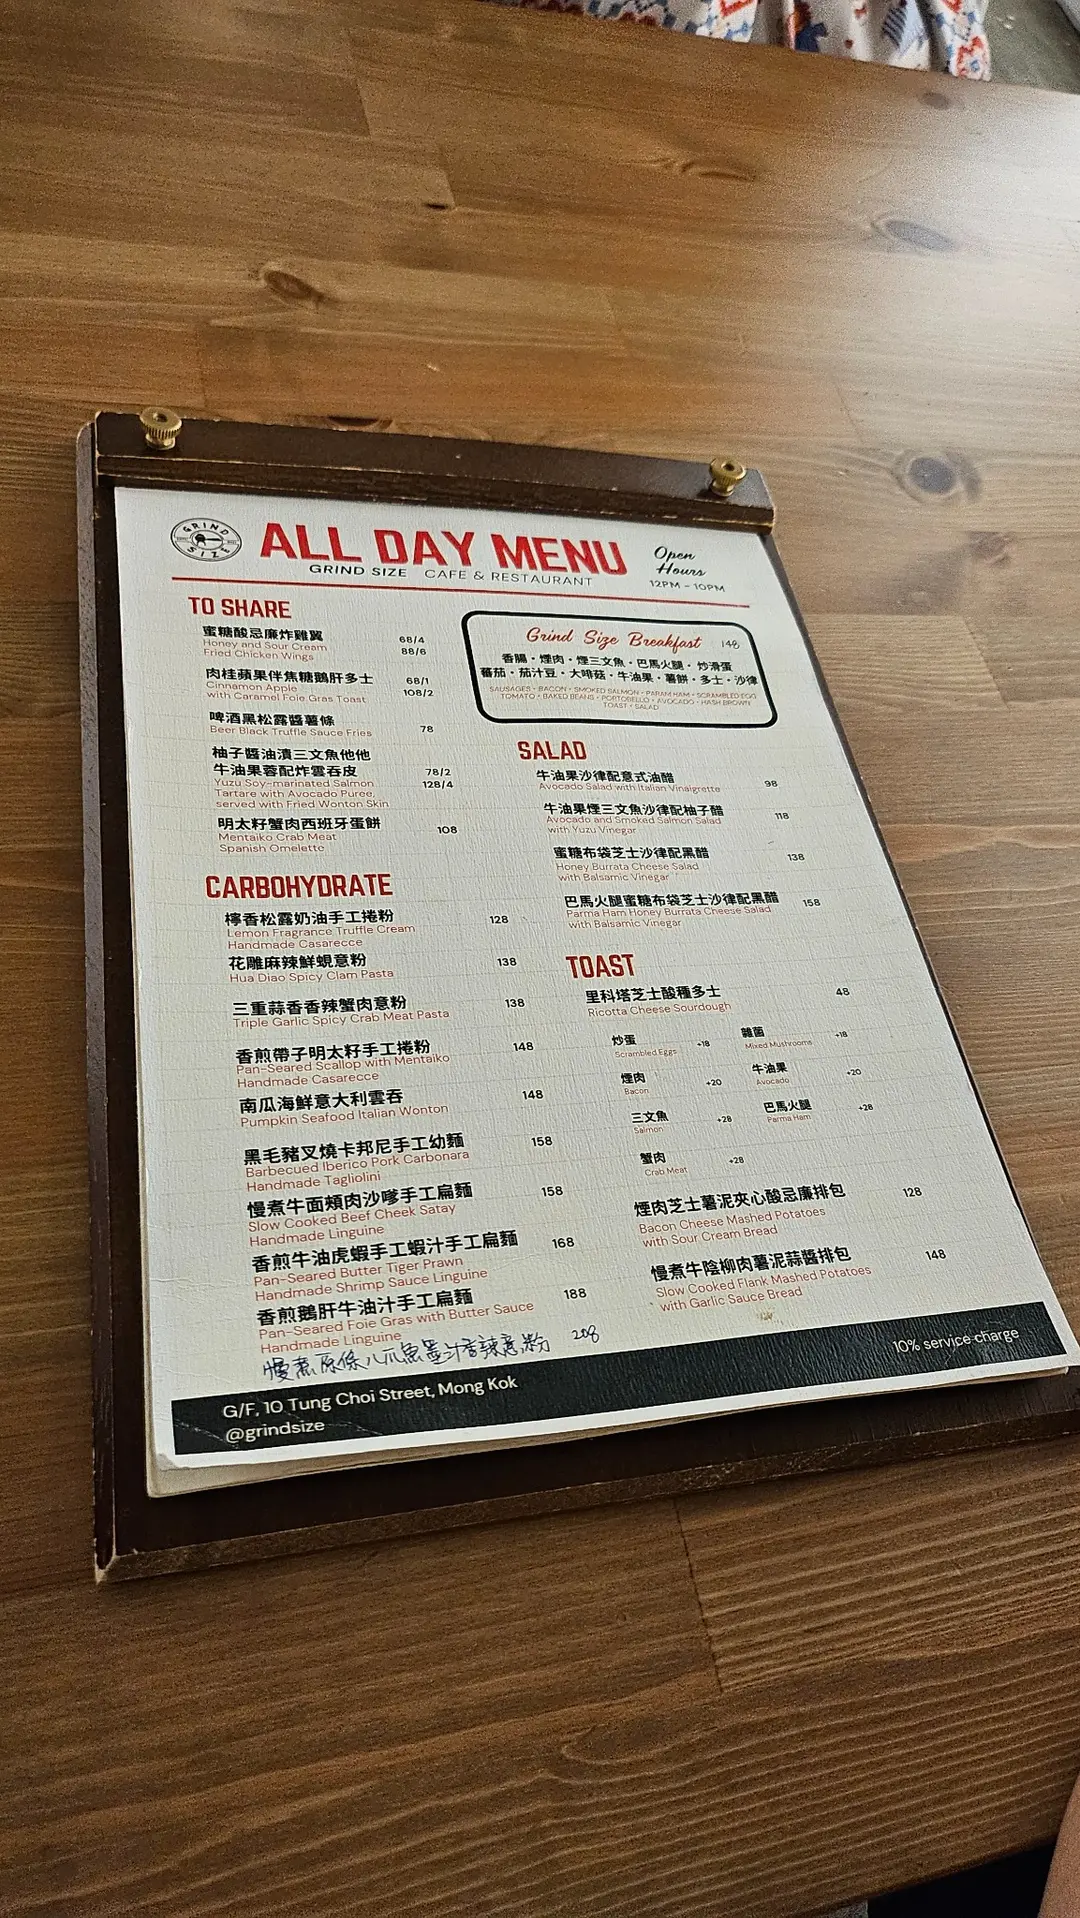 GRIND
SIZE
ALL DAY MENU
GRIND SIZE CAFE & RESTAURANT
Open
Hours
12PM - 10PM
TO SHARE
蜜糖酸忌廉炸雞翼 68/4
Honey and Sour Cream 88/6
Fried Chicken Wings
肉桂蘋果伴焦糖鵝肝多士 68/1
Cinnamon Apple 108/2
with Caramel Foie Gras Toast
啤酒黑松露醬薯條 78
Beer Black Truffle Sauce Fries
柚子醬油漬三文魚他他
牛油果蓉配炸雲吞皮 78/2
Yuzu Soy-marinated Salmon 128/4
Tartare with Avocado Puree,
served with Fried Wonton Skin
明太籽蟹肉西班牙蛋餅 108
Mentaiko Crab Meat
Spanish Omelette
CARBOHYDRATE
檸香松露奶油手工捲粉 128
Lemon Fragrance Truffle Cream
Handmade Casarecce
花雕麻辣鮮蜆意粉 138
Hua Diao Spicy Clam Pasta
三重蒜香香辣蟹肉意粉 138
Triple Garlic Spicy Crab Meat Pasta
香煎帶子明太籽手工捲粉 148
Pan-Seared Scallop with Mentaiko
Handmade Casarecce
南瓜海鮮意大利雲吞 148
Pumpkin Seafood Italian Wonton
黑毛豬叉燒卡邦尼手工幼麵 158
Barbecued Iberico Pork Carbonara
Handmade Tagliolini
慢煮牛面頰肉沙嗲手工扁麵 158
Slow Cooked Beef Cheek Satay
Handmade Linguine
香煎牛油虎蝦手工蝦汁手工扁麵 168
Pan-Seared Butter Tiger Prawn
Handmade Shrimp Sauce Linguine
香煎鵝肝牛油汁手工扁麵 188
Pan-Seared Foie Gras with Butter Sauce
Handmade Linguine
慢煮原條八爪魚墨汁香辣意粉 208
Grind Size Breakfast 148
香腸・煙肉・煙三文魚・巴馬火腿・炒滑蛋
蕃茄・茄汁豆・大啡菇・牛油果・薯餅・多士・沙律
SAUSAGES • BACON • SMOKED SALMON • PARAM HAM • SCRAMBLED EGG
TOMATO • BAKED BEANS • PORTOBELLO • AVOCADO • HASH BROWN
TOAST • SALAD
SALAD
牛油果沙律配意式油醋 98
Avocado Salad with Italian Vinaigrette
牛油果煙三文魚沙律配柚子醋 118
Avocado and Smoked Salmon Salad
with Yuzu Vinegar
蜜糖布袋芝士沙律配黑醋 138
Honey Burrata Cheese Salad
with Balsamic Vinegar
巴馬火腿蜜糖布袋芝士沙律配黑醋 158
Parma Ham Honey Burrata Cheese Salad
with Balsamic Vinegar
TOAST
里科塔芝士酸種多士 48
Ricotta Cheese Sourdough
炒蛋 +18 雜菌 +18
Scrambled Eggs Mixed Mushrooms
煙肉 +20 牛油果 +20
Bacon Avocado
三文魚 +28 巴馬火腿 +28
Salmon Parma Ham
蟹肉 +28
Crab Meat
煙肉芝士薯泥夾心酸忌廉排包 128
Bacon Cheese Mashed Potatoes
with Sour Cream Bread
慢煮牛陰柳肉薯泥蒜醬排包 148
Slow Cooked Flank Mashed Potatoes
with Garlic Sauce Bread
G/F, 10 Tung Choi Street, Mong Kok
@grindsize
10% service charge